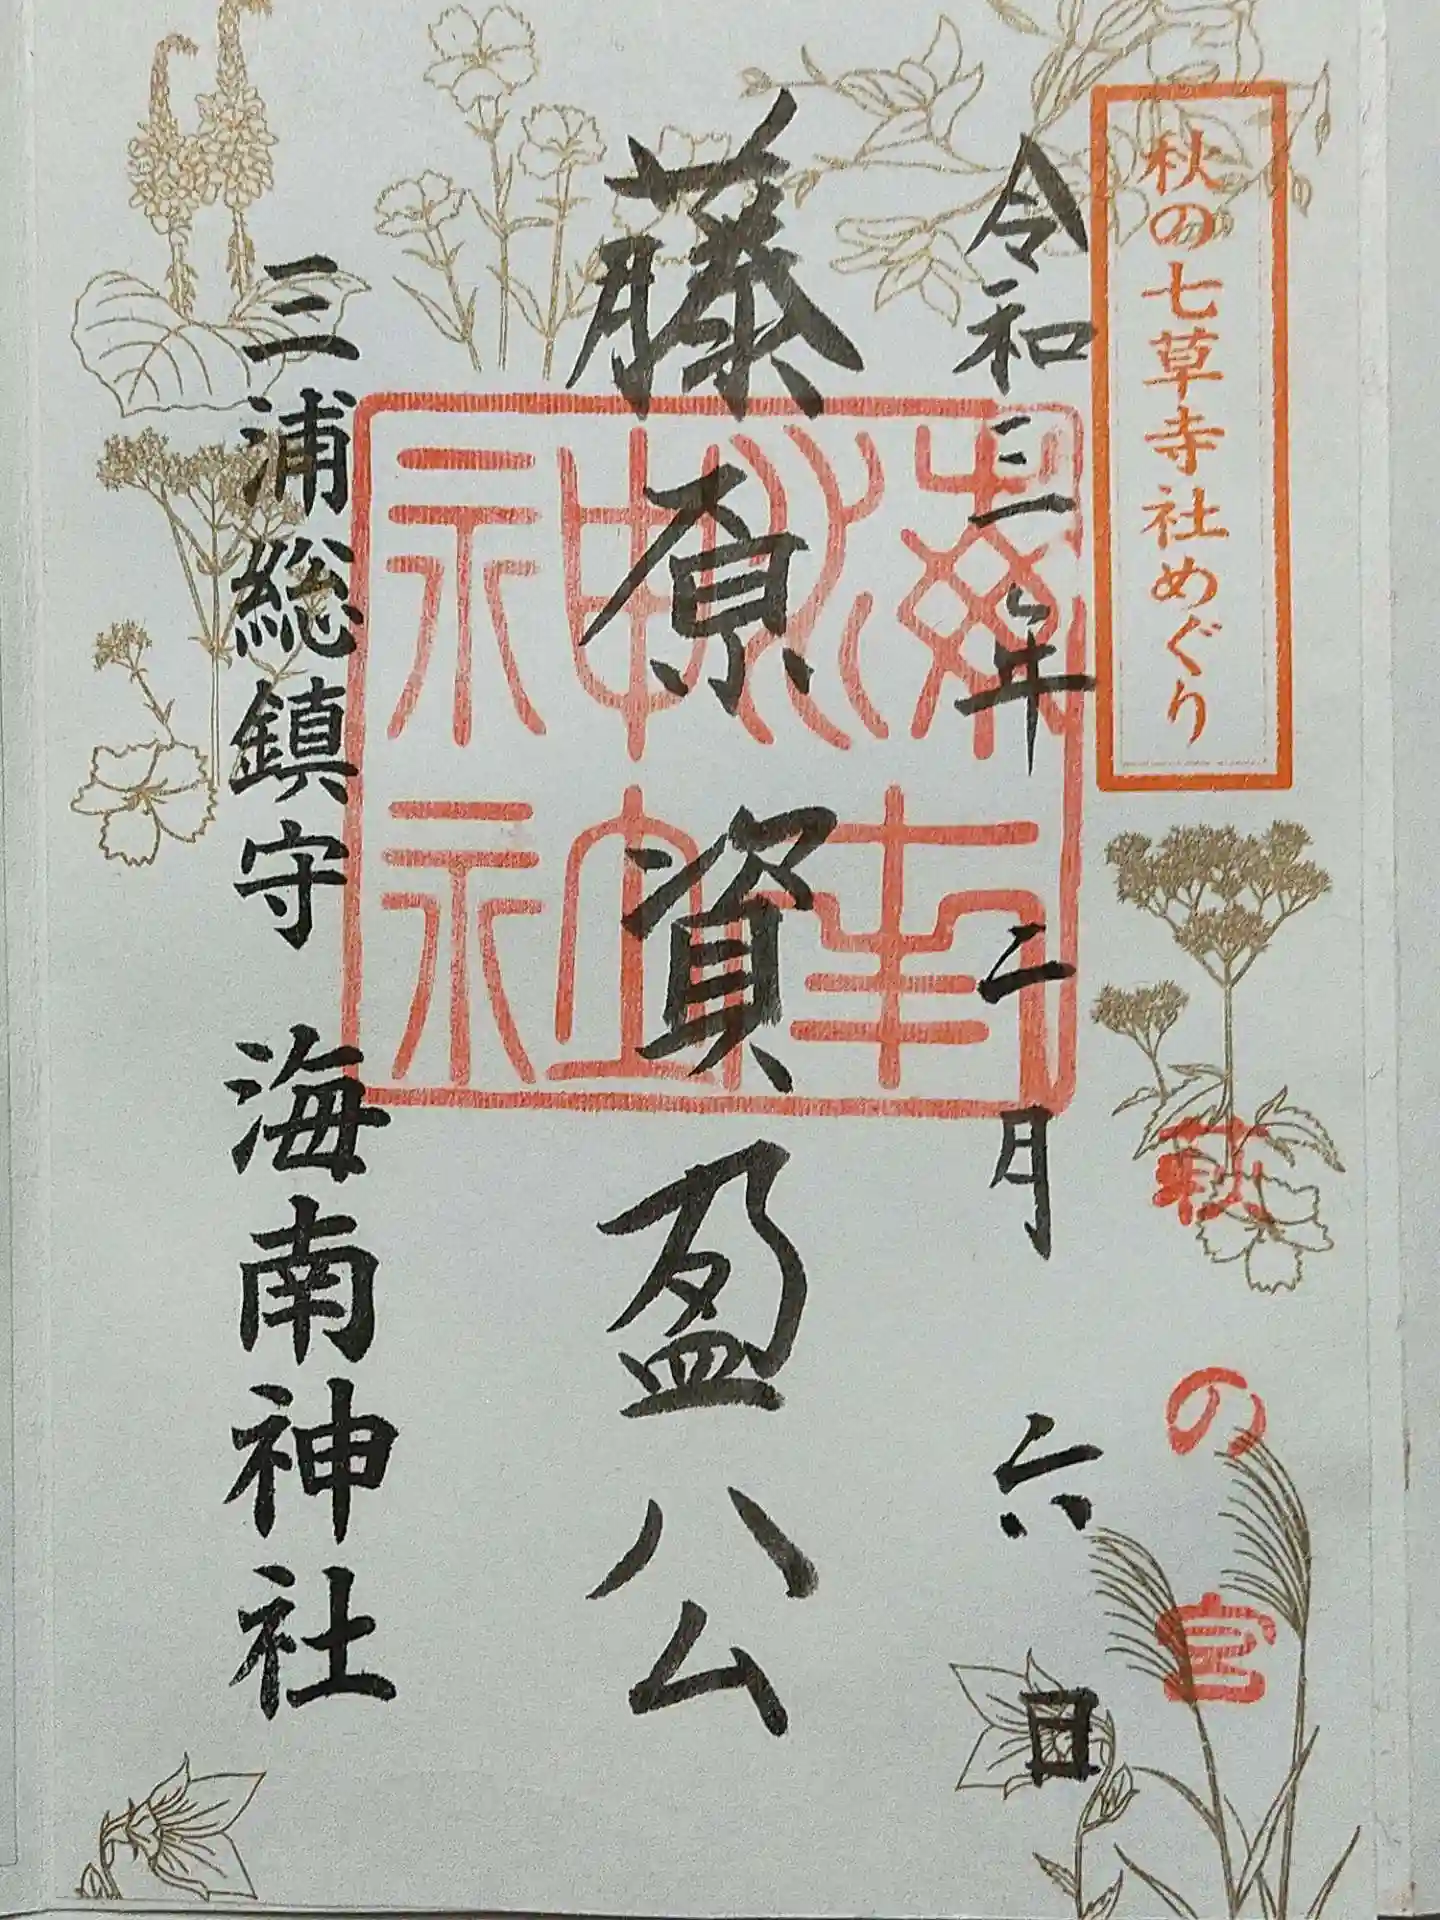 秋の七草寺社めぐり
萩の宮
令和三年二月六日
藤原資盈公
海南神社
三浦総鎮守 海南神社